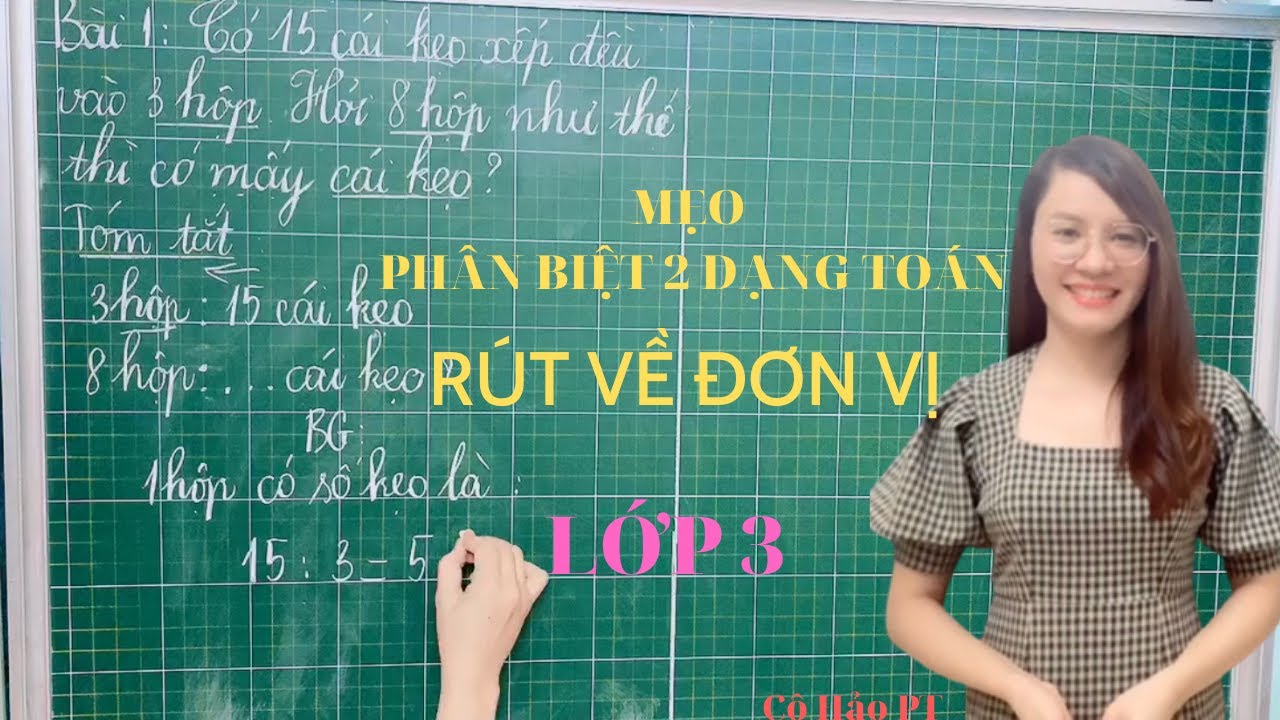 Bài 1: Có 15 cái kẹo xếp đều
vào 3 hộp. Hỏi 8 hộp như thế
thì có mấy cái kẹo?
Tóm tắt
3 hộp: 15 cái kẹo
8 hộp: ... cái kẹo ?
BG:
1 hộp có số kẹo là :
15 : 3 = 5
MẸO
PHÂN BIỆT 2 DẠNG TOÁN
RÚT VỀ ĐƠN VỊ
LỚP 3
Cô Hảo PT